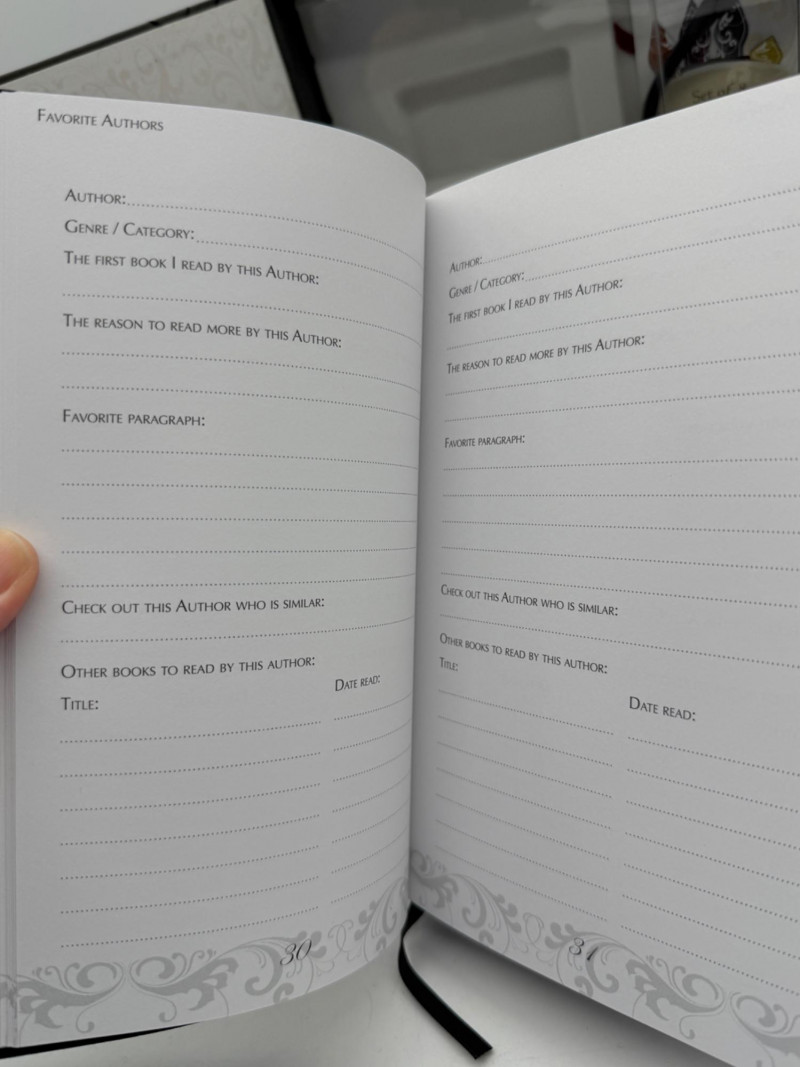 Favorite Authors
Author:
Genre / Category:
The first book I read by this Author:
The reason to read more by this Author:
Favorite paragraph:
Check out this Author who is similar:
Other books to read by this author:
Title: Date read:
30
Author:
Genre / Category:
The first book I read by this Author:
The reason to read more by this Author:
Favorite paragraph:
Check out this Author who is similar:
Other books to read by this author:
Title: Date read:
31
Set of